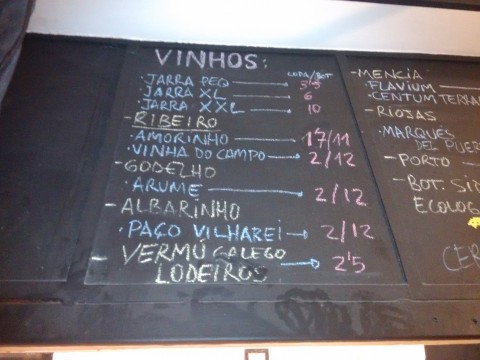 VINHOS:
COPA/BOT
·JARRA PEQ → 3'5
JARRA XL → 6
·JARRA XXL → 10
-RIBEIRO
·AMORINHO → 17/11
·VINHA DO CAMPO → 2/12
-GODELHO
·ARUME → 2/12
-ALBARINHO
·PAÇO VILHAREI → 2/12
-VERMÚ GALEGO
LODEIROS → 2'5
-MENCIA
FLAVIUM
CENTUM TERRA
-RIOJAS
·MARQUÉS
DEL PUER
-PORTO
-BOT. SID
ECOLOG
CER